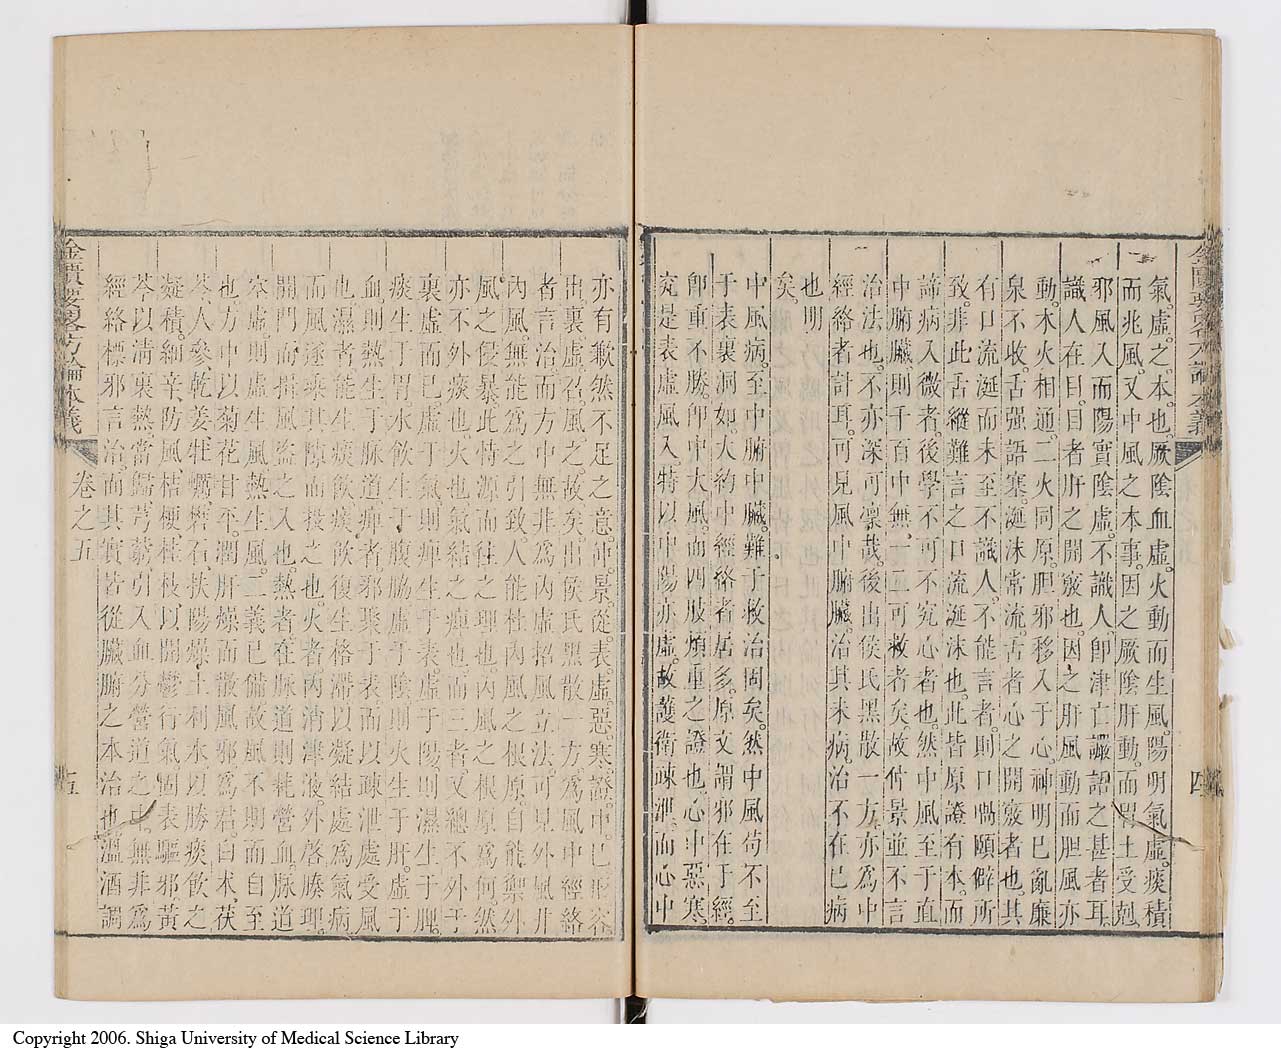 氣虛之本也厥陰血虛火動而生風陽明氣虛痰積
而兆風又中風之本事因之厥陰肝動而胃土受尅
邪風入而陽實陰虛不識人卽津亡讝語之甚者耳
識人在目目者肝之開竅也因之肝風動而胆風亦
動木火相通二火同原胆邪移入于心神明已亂廉
泉不收舌强語蹇涎沫常流舌者心之開竅者也其
有口流涎而未至不識人不能言者則口喎頤僻所
致非此舌縱難言之口流涎沫也此皆原證有本而
諦病入微者後學不可不究心者也然中風至于直
中腑臟則千百中無一二可救者矣故仲景並不言
治法也不亦深可凛哉後出侯氏黑散一方亦爲中
經絡者計耳可見風中腑臟治其未病治不在已病
也明
矣
中風病至中腑中臟難于救治固矣然中風苟不至
于表裏洞如大約中經絡者居多原文謂邪在于經
卽重不勝卽中大風而四肢煩重之證也心中惡寒
究是表虛風入特以中陽亦虛故護衛疎泄而心中
亦有歉然不足之意仲景從表虛惡寒證中已形容
出裏虛召風之故矣出侯氏黑散一方爲風中經絡
者言治而方中無非爲內虛招風立法可見外風非
內風無能爲之引致人能杜內風之根原自能禦外
風之侵暴此恃源而往之理也內風之根原爲何然
亦不外痰也火也氣結之痺也而三者又總不外于
裏虛而已虛于氣則痺生于表虛于陽則濕生于脾
痰生于胃水飲生于腹脇虛于陰則火生于肝虛于
血則熱生于脈道痺者邪聚于表而以疎泄處受風
也濕者能生痰飲痰飲復生格滯以凝結處爲氣病
而風遂乘其隙而投之也火者內消津液外啓腠理
開門而揖風盜之入也熱者在脈道則耗營血脈道
本虛則虛生風熱生風二義已備故風不期而自至
也方中以菊花甘平潤肝燥而散風邪爲君白术茯
苓人參乾姜牡蠣礬石扶陽燥土利水以勝痰飲之
凝積細辛防風桔梗桂枝以開鬱行氣固表驅邪黃
芩以淸裏熱當歸芎藭引入血分營道之中無非爲
經絡標邪言治而其實皆從臟腑之本治也溫酒調
金匱要畧方論本義
卷之五
五